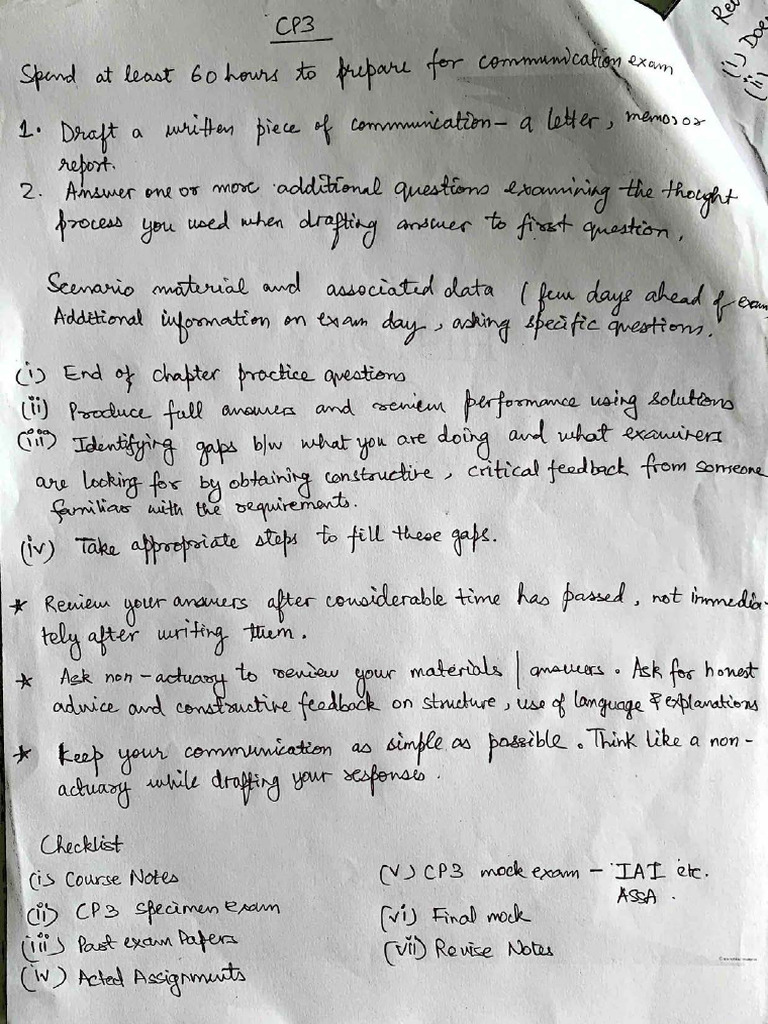 CP3
Spend at least 60 hours to prepare for communication exam
1. Draft a written piece of communication - a letter, memos or
report.
2. Answer one or more additional questions examining the thought
process you used when drafting answer to first question.
Scenario material and associated data ( few days ahead of exam
Additional information on exam day, asking specific questions.
(i) End of chapter practice questions
(ii) Produce full answers and review performance using solutions
(iii) Identifying gaps b/w what you are doing and what examiners
are looking for by obtaining constructive, critical feedback from someone
familiar with the requirements.
(iv) Take appropriate steps to fill these gaps.
* Review your answers after considerable time has passed, not immedia-
tely after writing them.
* Ask non-actuary to review your materials / answers. Ask for honest
advice and constructive feedback on structure, use of language & explanations
* Keep your communication as simple as possible. Think like a non-
actuary while drafting your responses.
Checklist
(i) Course Notes
(ii) CP3 specimen exam
(iii) Past exam Papers
(iv) Acted Assignments
(v) CP3 mock exam - IAI etc.
ASSA.
(vi) Final mock
(vii) Revise Notes
Rev
(i) Doe
(ii)